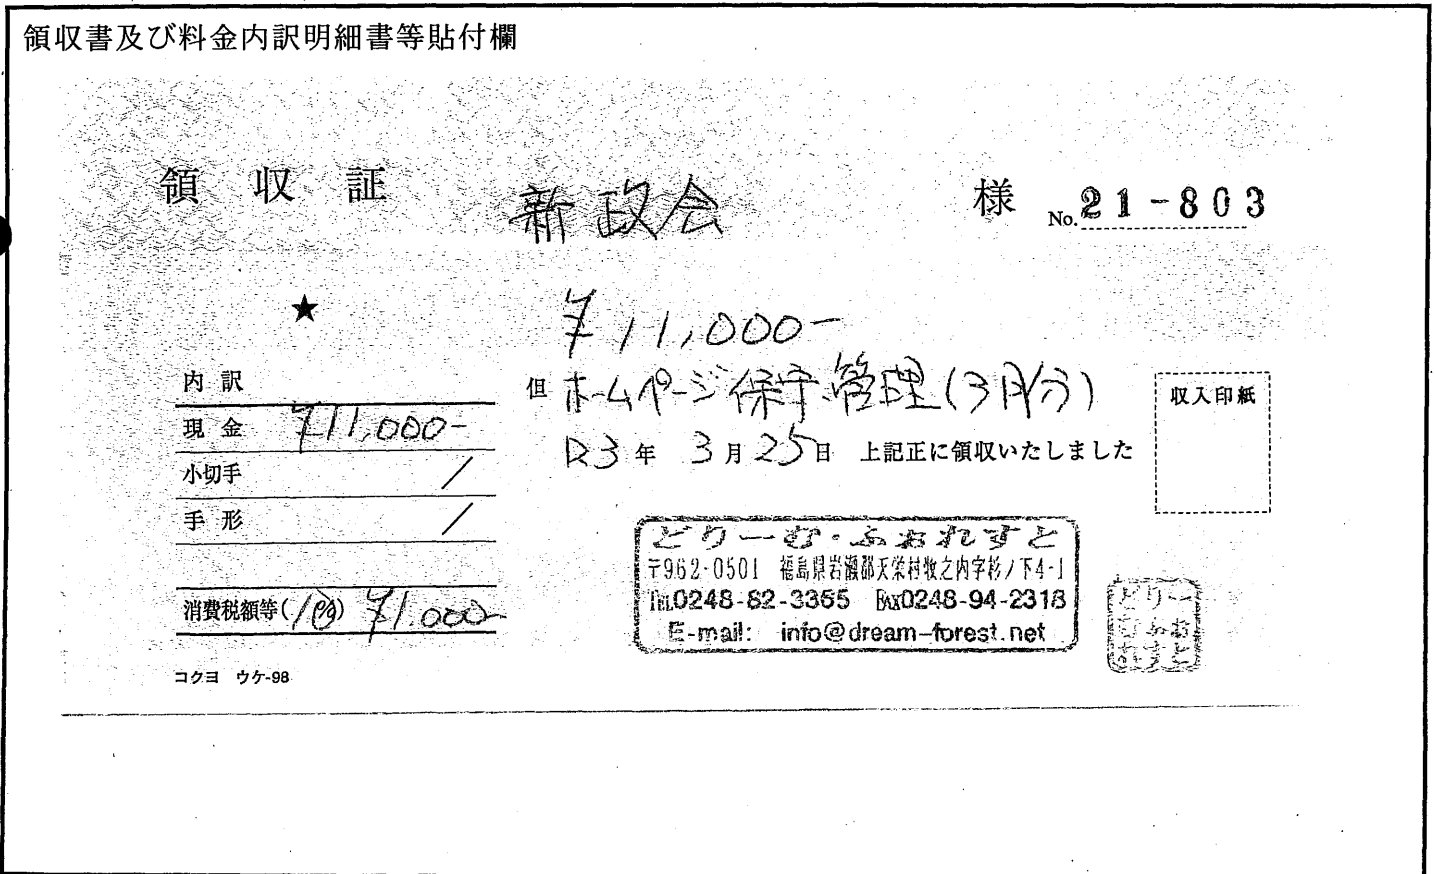 領収書及び料金内訳明細書等貼付欄
領収証 新政会 様 No.21-803
★
¥11,000-
但 ホームページ保守管理(3月分)
R3年 3月25日 上記正に領収いたしました
収入印紙
内訳
現金 ¥11,000-
小切手 /
手形 /
消費税額等(10%) ¥1,000-
コクヨ ウケ-98
どりーむ・ふぉれすと
〒962-0501 福島県岩瀬郡天栄村牧之内字杉ノ下4-1
TEL0248-82-3365 FAX0248-94-2318
E-mail: info@dream-forest.net
どりー
むふぉ
れすと